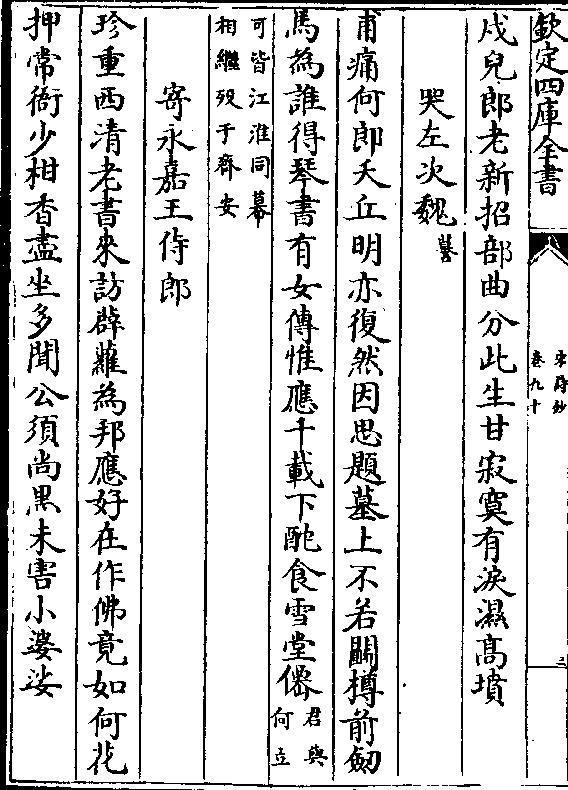 欽定四庫全書
宋詩鈔
卷九十
三
戍兒郎老新招部曲分此生甘寂寞有淚濕高墳
哭左次魏𦶜
甫痛何郎夭丘明亦復然因思題墓上不若鬭樽前劒
馬為誰得琴書有女傳惟應千載下配食雪堂僊君與何立
可皆江淮同幕相繼歿于齊安
寄永嘉王侍郎
珍重西清老書來訪薜蘿為邦應好在作佛竟如何花
押常衙少柑香盡坐多聞公須尚黒未害小婆娑